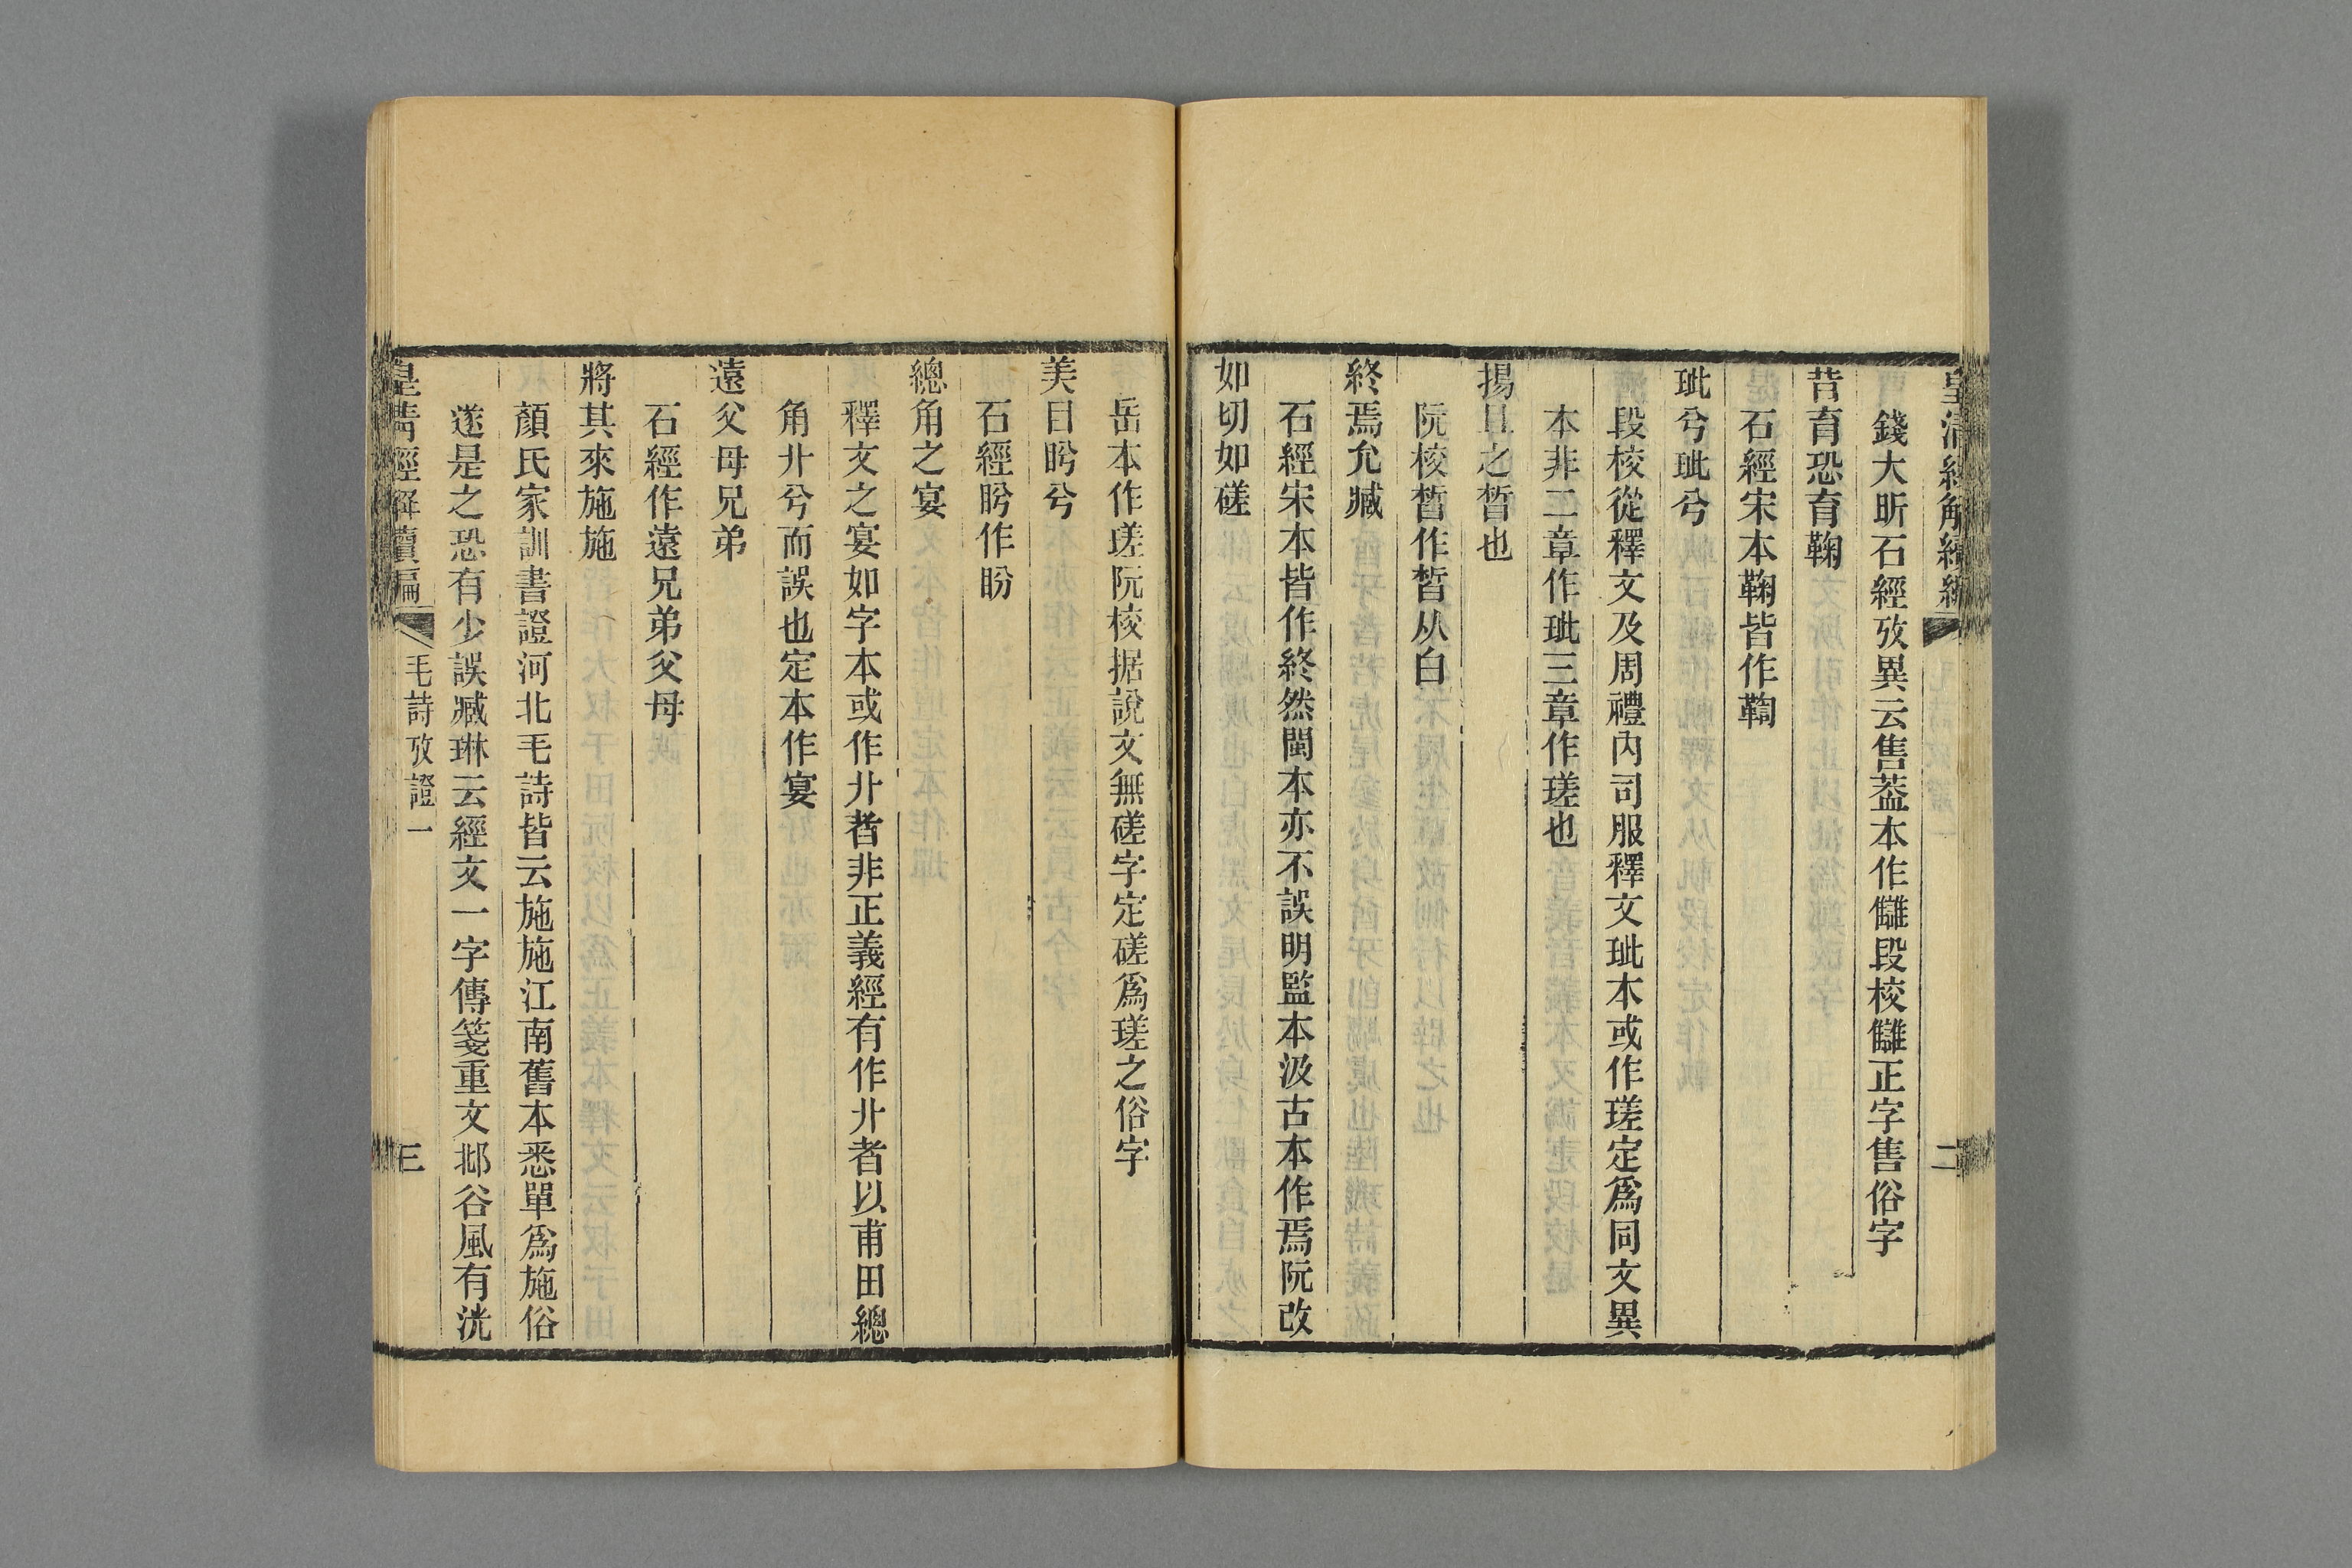 皇清經解續編
二
錢大昕石經攷異云售葢本作讎段校讎正字售俗字
昔育恐育鞠
石經宋本鞠皆作鞫
玼兮玼兮
段校從釋文及周禮內司服釋文玼本或作瑳定爲同文異
本非二章作玼三章作瑳也
揚且之晳也
阮校晢作晳从白
終焉允臧
石經宋本皆作終然閩本亦不誤明監本汲古本作焉阮改
如切如磋
岳本作瑳阮校据說文無磋字定磋爲瑳之俗字
美目盻兮
石經盻作盼
總角之宴
釋文之宴如字本或作丱者非正義經有作丱者以甫田總
角丱兮而誤也定本作宴
遠父母兄弟
石經作遠兄弟父母
將其來施施
顏氏家訓書證河北毛詩皆云施施江南舊本悉單爲施俗
遂是之恐有少誤臧琳云經文一字傳箋重文邶谷風有洸
皇清經解續編
毛詩攷證一
三